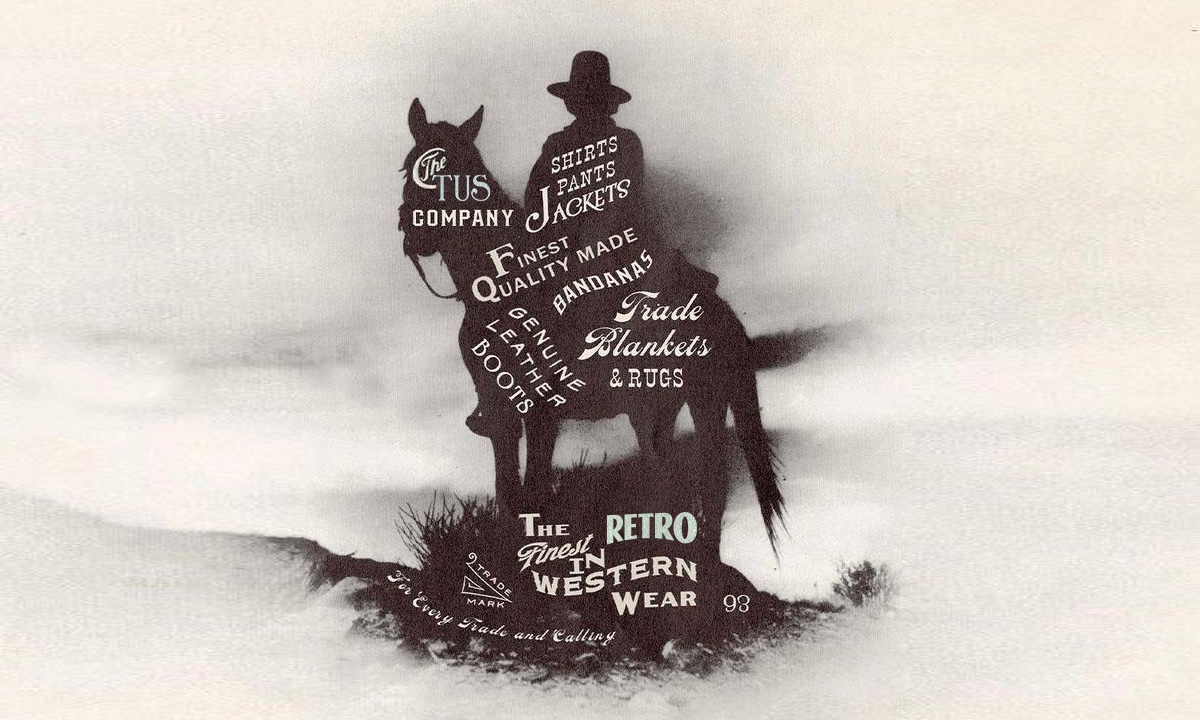 The
TUS
COMPANY
SHIRTS
PANTS
JACKETS
FINEST
QUALITY MADE
BANDANAS
GENUINE
LEATHER
BOOTS
Trade
Blankets
& RUGS
THE
Finest
RETRO
IN
WESTERN
WEAR
93
TRADE
MARK
For Every Trade and Calling